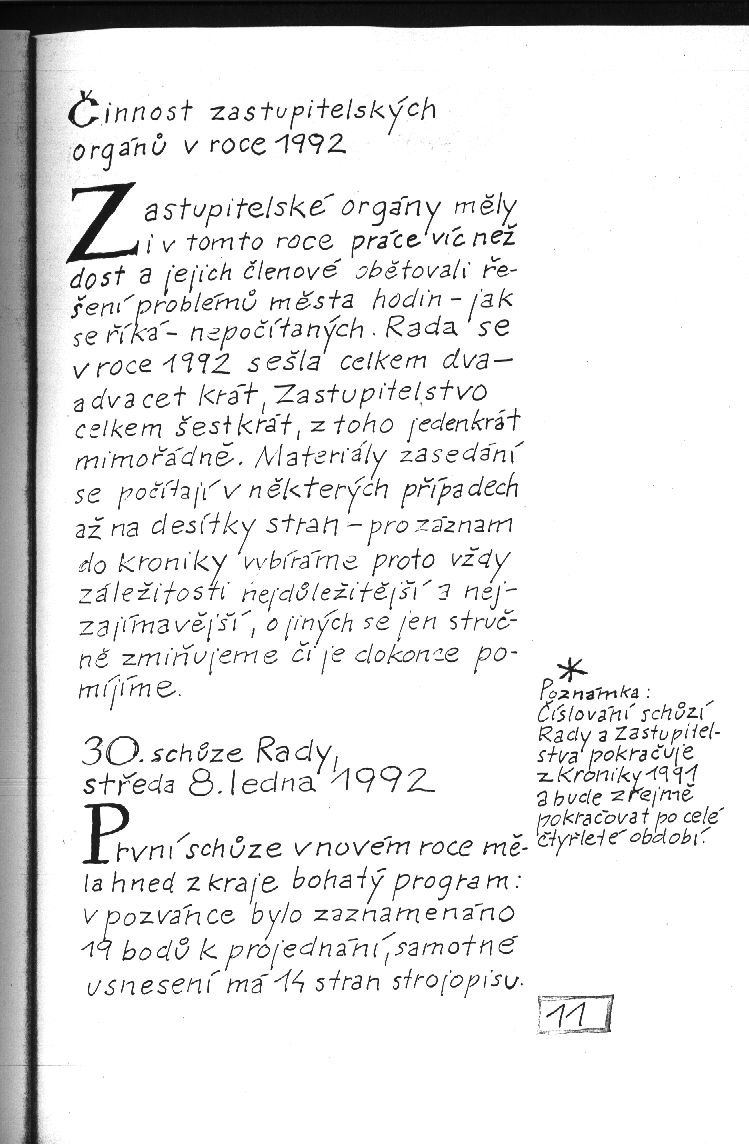 Činnost zastupitelských
orgánů v roce 1992
Zastupitelské orgány měly
i v tomto roce práce víc než
dost a jejich členové obětovali ře-
šení problémů města hodin – jak
se říká – nepočítaných. Rada se
v roce 1992 sešla celkem dva–
advacet krát, Zastupitelstvo
celkem šestkrát, z toho jedenkrát
mimořádně. Materiály zasedání
se počítají v některých případech
až na desítky stran – pro záznam
do kroniky vybíráme proto vždy
záležitosti nejdůležitější a nej-
zajímavější, o jiných se jen struč-
ně zmiňujeme či je dokonce po-
míjíme.
30. schůze Rady,
středa 8. ledna 1992
První schůze v novém roce mě-
la hned z kraje bohatý program:
v pozvánce bylo zaznamenáno
19 bodů k projednání, samotné
usnesení má 14 stran strojopisu.
*
Poznámka:
Číslování schůzí
Rady a Zastupitel-
stva pokračuje
z Kroniky 1991
a bude zřejmě
pokračovat po celé
čtyřleté období.
11